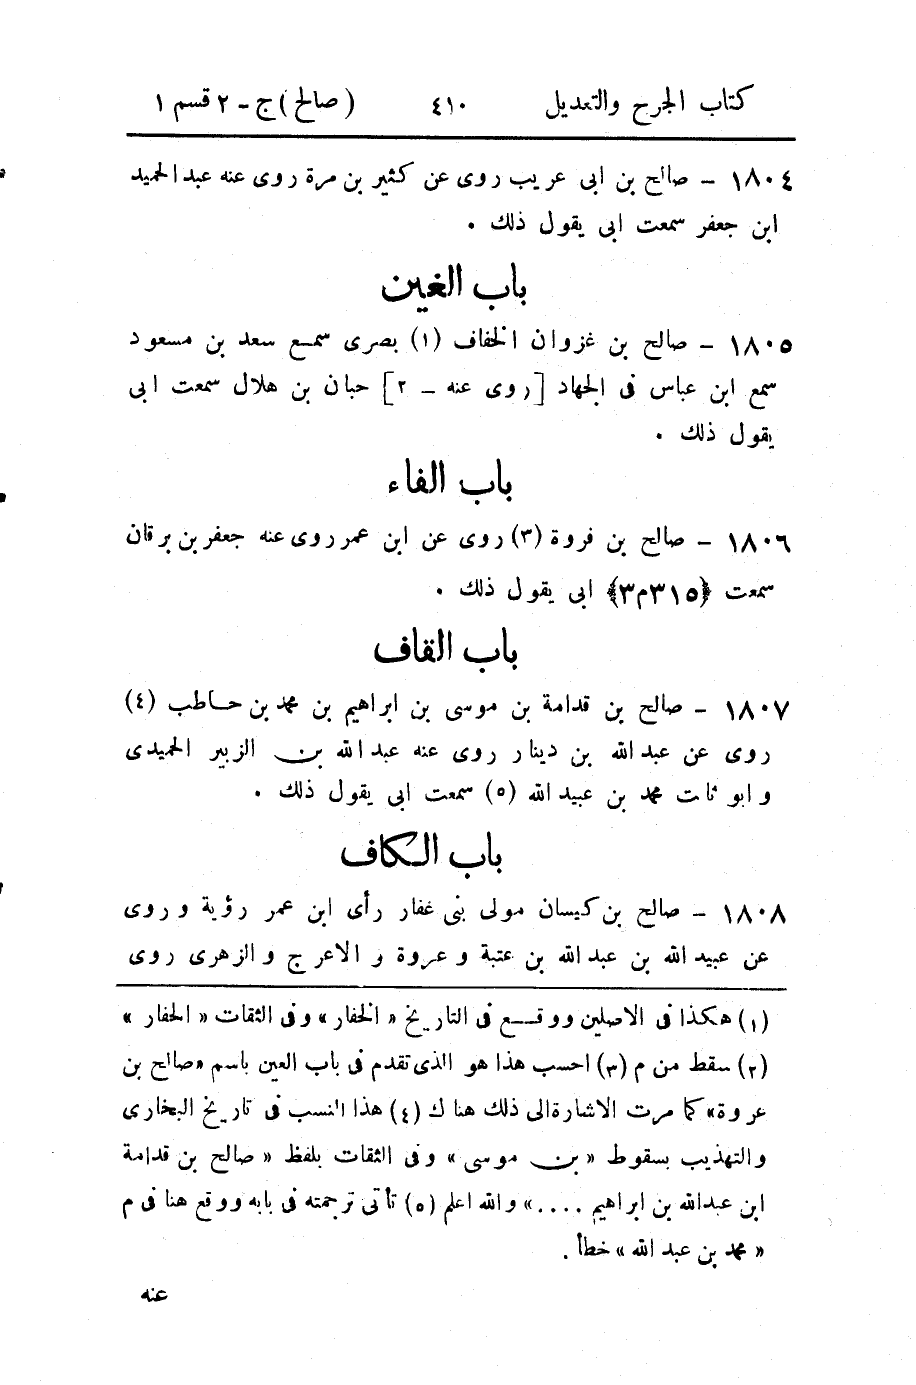 كتاب الجرح والتعديل ٤١٠ (صالح) ج - ٢ قسم ١
١٨٠٤ - صالح بن ابى عريب روى عن كثير بن مرة روى عنه عبد الحميد
ابن جعفر سمعت ابى يقول ذلك .
باب الغين
١٨٠٥ - صالح بن غزوان الخفاف (١) بصرى سمع سعد بن مسعود
سمع ابن عباس فى الجهاد [روى عنه - ٢] حبان بن هلال سمعت ابى
يقول ذلك .
باب الفاء
١٨٠٦ - صالح بن فروة (٣) روى عن ابن عمر روى عنه جعفر بن برقان
سمعت ﴿٣١٥م٣﴾ ابى يقول ذلك .
باب القاف
١٨٠٧ - صالح بن قدامة بن موسى بن ابراهيم بن محمد بن حاطب (٤)
روى عن عبد الله بن دينار روى عنه عبد الله بن الزبير الحميدى
و ابو ثابت محمد بن عبيد الله (٥) سمعت ابى يقول ذلك .
باب الكاف
١٨٠٨ - صالح بن كيسان مولى بنى غفار رأى ابن عمر رؤية و روى
عن عبيد الله بن عبد الله بن عتبة و عروة و الاعرج و الزهرى روى
(١) هكذا فى الاصلين ووقع فى التاريخ « الخفار » وفى الثقات « الحفار »
(٢) سقط من م (٣) احسب هذا هو الذى تقدم فى باب العين باسم «صالح بن
عروة» كما مرت الاشارة الى ذلك هناك (٤) هذا النسب فى تاريخ البخارى
والتهذيب بسقوط « بن موسى » وفى الثقات بلفظ « صالح بن قدامة
ابن عبد الله بن ابراهيم ....» والله اعلم (٥) تأتى ترجمته فى بابه ووقع هنا فى م
« محمد بن عبد الله » خطأ .
عنه